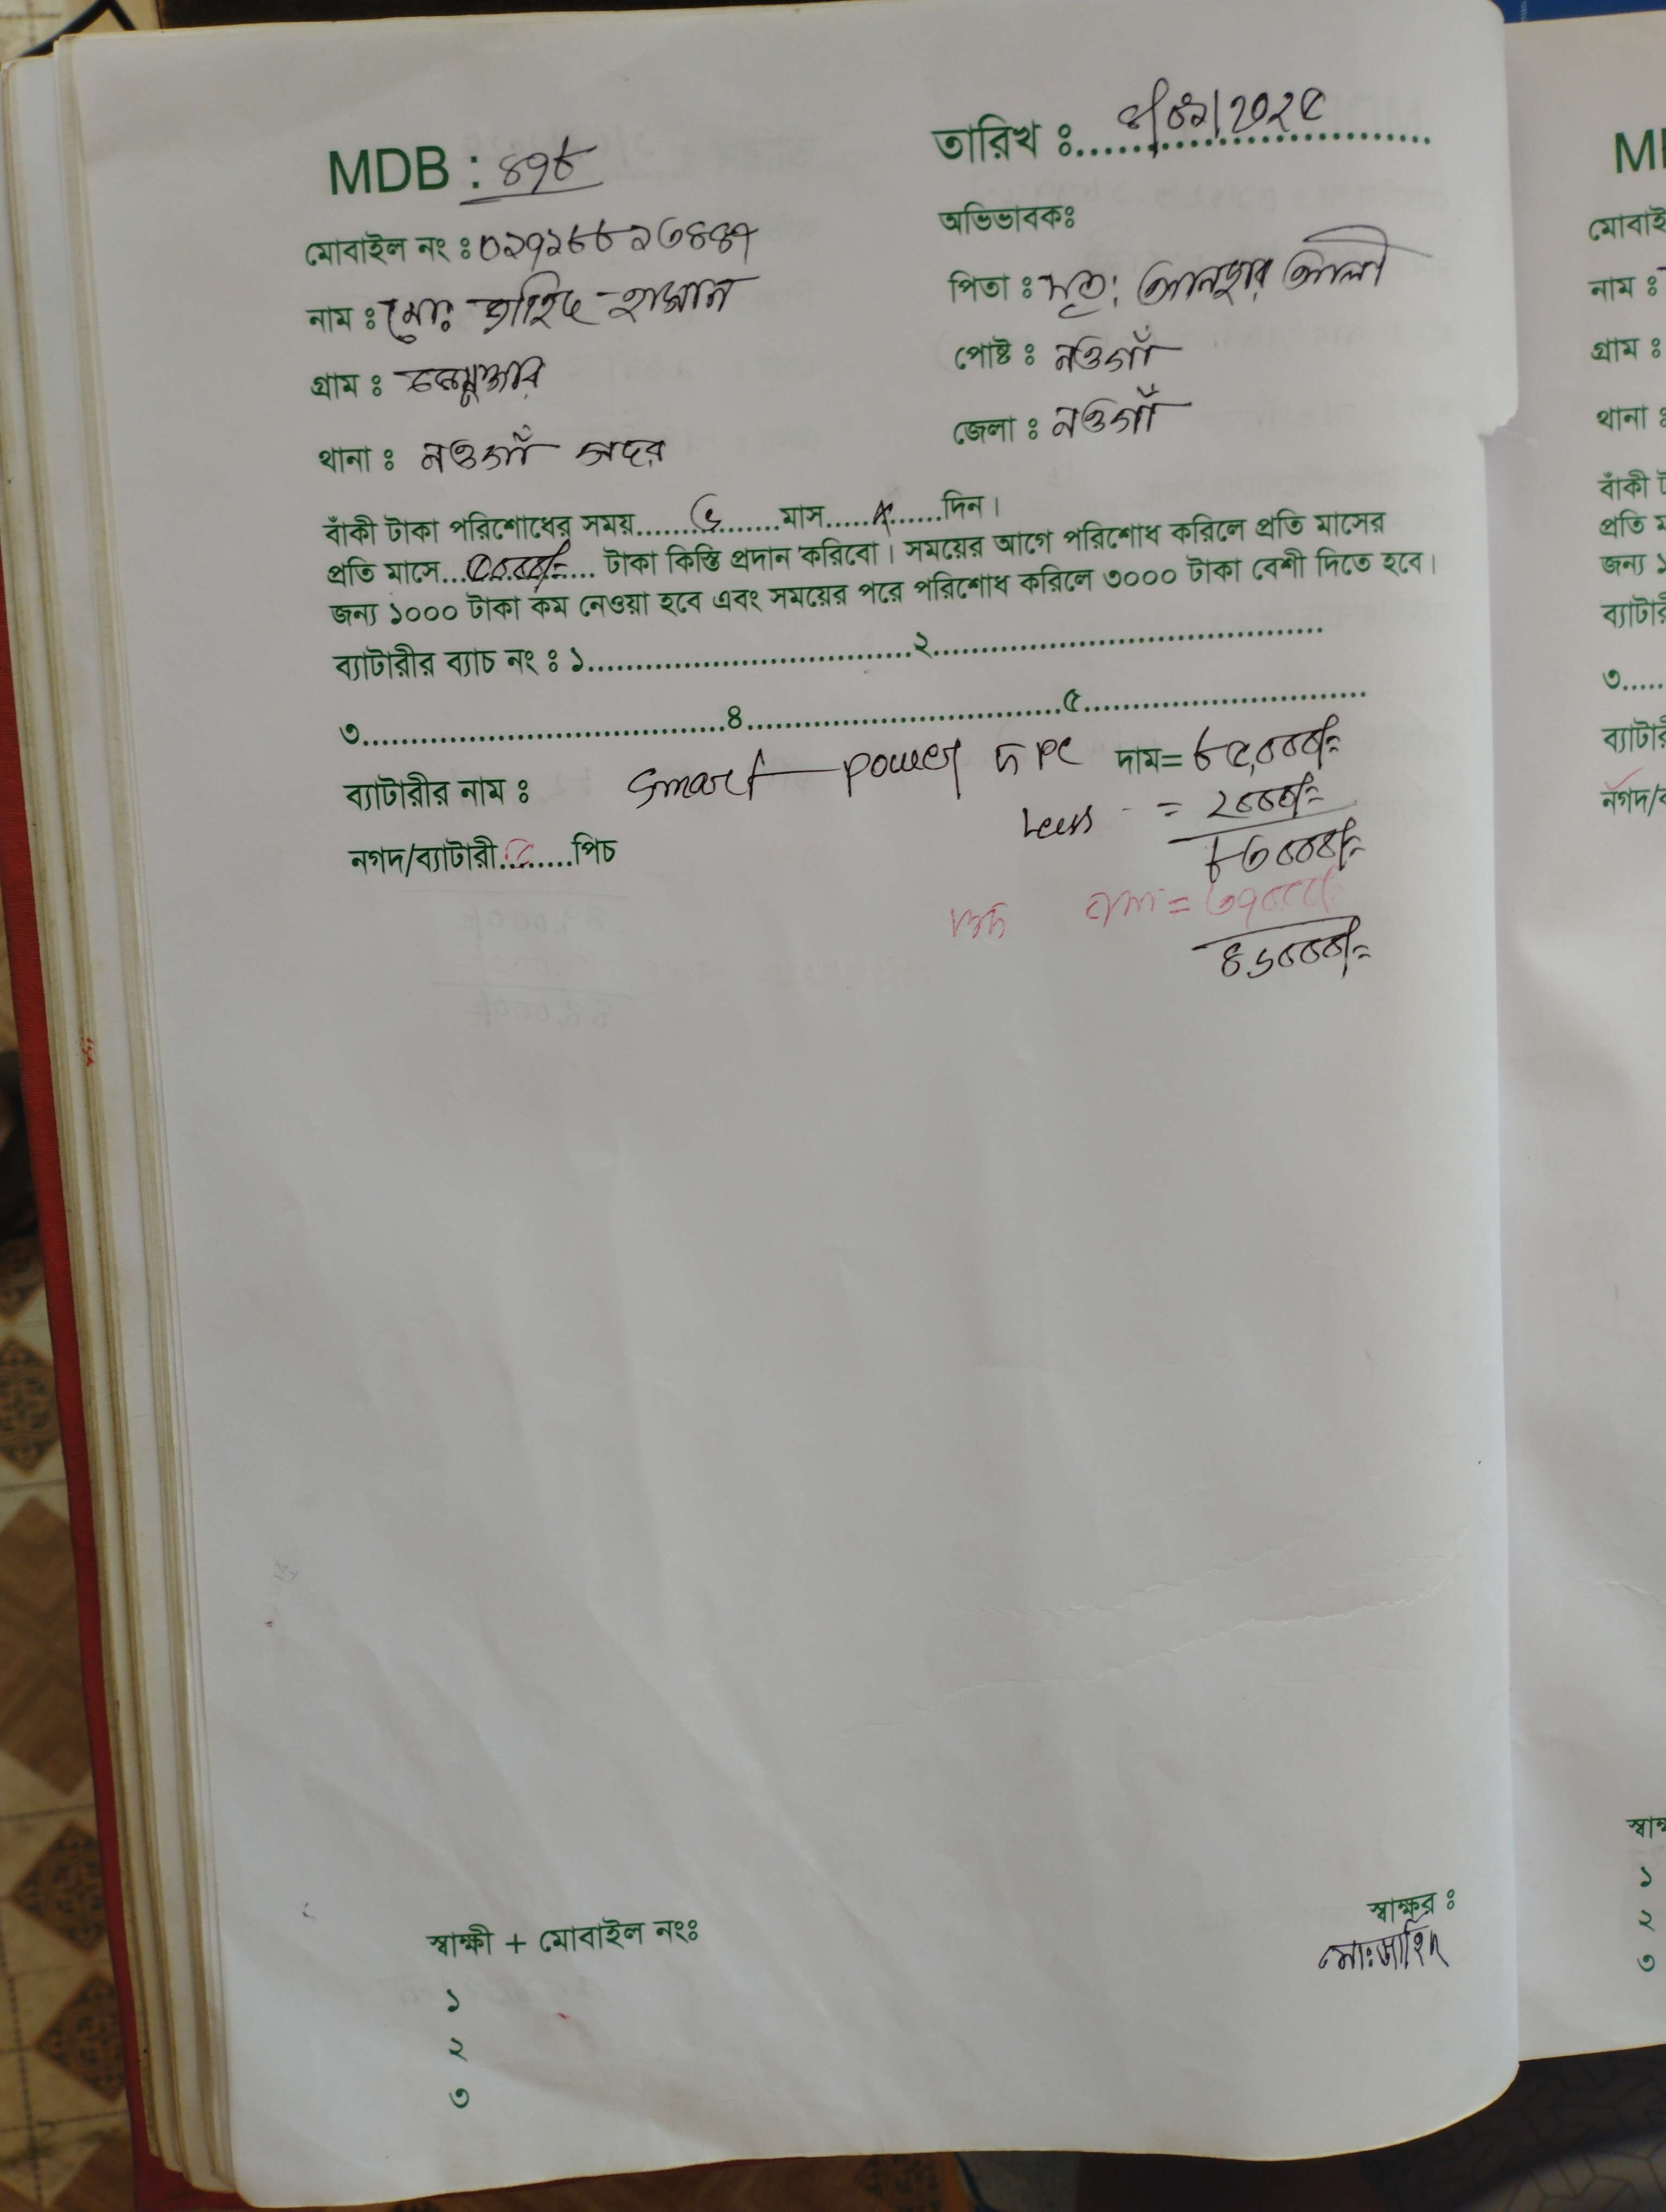 MDB : ৪৭৮
তারিখ ঃ ৪/০২/২০২৫
মোবাইল নং ঃ
অভিভাবকঃ
নাম ঃ মোঃ জাহিদ হাসান
পিতা ঃ মৃত: আনছার আলী
গ্রাম ঃ
পোষ্ট ঃ নওগাঁ
থানা ঃ নওগাঁ সদর
জেলা ঃ নওগাঁ
বাঁকী টাকা পরিশোধের সময়.......৬.......মাস.....×......দিন।
প্রতি মাসে...৫০০০/=... টাকা কিস্তি প্রদান করিবো। সময়ের আগে পরিশোধ করিলে প্রতি মাসের
জন্য ১০০০ টাকা কম নেওয়া হবে এবং সময়ের পরে পরিশোধ করিলে ৩০০০ টাকা বেশী দিতে হবে।
ব্যাটারীর ব্যাচ নং ঃ ১..................................২..................................
৩..................................৪..................................৫..................................
ব্যাটারীর নাম ঃ Smart power ৫ Pc দাম= ৮৫,০০০/=
Less = ২০০০/=
নগদ/ব্যাটারী.........পিচ
৮৩০০০/=
= ৩৭০০০/=
৪৬০০০/=
স্বাক্ষী + মোবাইল নংঃ
স্বাক্ষর ঃ
মোঃ জাহিদ
১
২
৩
মোবাই
নাম ঃ
গ্রাম ঃ
থানা ঃ
বাঁকী ট
জন্য ১
৩.....
নগদ/ব
১
২
৩